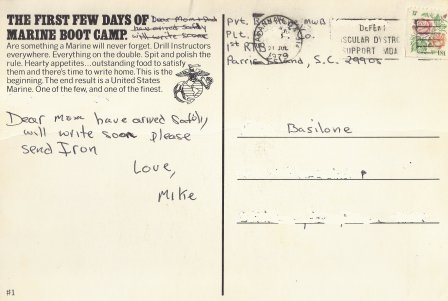 THE FIRST FEW DAYS OF
MARINE BOOT CAMP.
Are something a Marine will never forget. Drill Instructors
everywhere. Everything on the double. Spit and polish the
rule. Hearty appetites...outstanding food to satisfy
them and there's time to write home. This is the
beginning. The end result is a United States
Marine. One of the few, and one of the finest.
Dear Mom have arived Safely,
will write soon please
send Iron
Love,
Mike
#1
Pvt. MWB
Plt.
1st RTB
Parris Island, S.C. 29905
1979
DEFEAT
SUPPORT MDA
Basilone